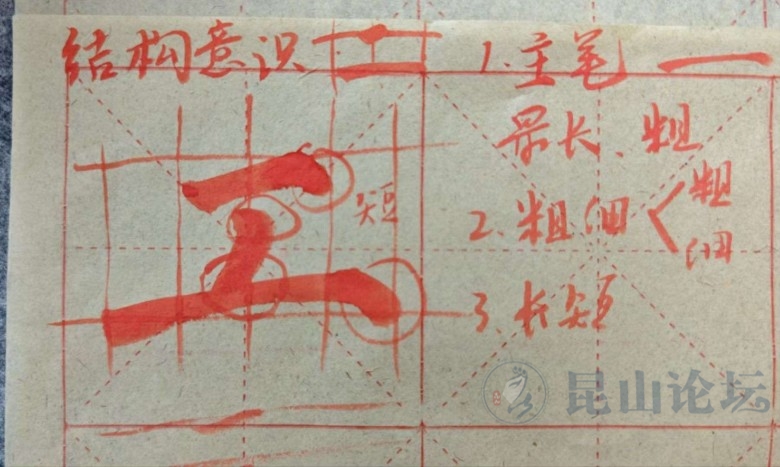 结构意识
1.主笔 一
最长、粗
2.粗细 粗
细
3.长短
短
工
昆山论坛